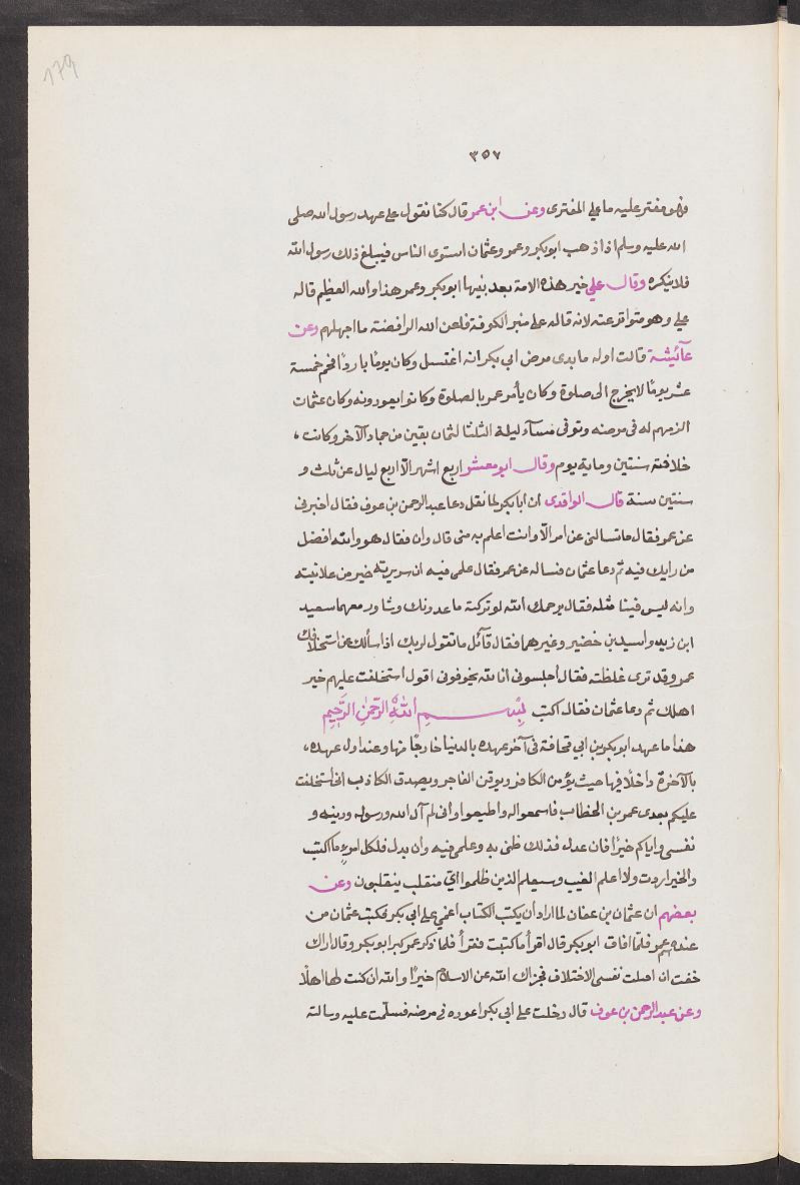 179
٣٥٧
فهو مفتر عليه ما على المفترى وعن ابن عمر قال كنا نقول على عهد رسول الله صلى
الله عليه وسلم اذا ذهب ابو بكر وعمر وعثمان استوى الناس فيبلغ ذلك رسول الله
فلا ينكره وقال علي خير هذه الامة بعد نبيها ابو بكر وعمر هذا والله العظيم قاله
علي وهو متواتر عنه لانه قاله على منبر الكوفة فلعن الله الرافضة ما اجهلهم وعن
عآئيشة قالت اول ما بدى مرض ابي بكر انه اغتسل وكان يومًا باردًا فحم خمسة
عشر يومًا لا يخرج الى صلوة وكان يأمر عمر بالصلوة وكانوا يعودونه وكان عثمان
الزمهم له فى مرضه وتوفى مسآء ليلة الثلثا لثمان بقين من جماد الآخر وكانت
خلافته سنتين وماية يوم وقال ابو معشر اربع اشهر الّا اربع ليال عن ثلث و
سنتين سنة قال الواقدى ان ابا بكر لما نقل دعا عبد الرحمن بن عوف فقال اخبرنى
عن عمر فقال ما تسالنى عن امر الّا وانت اعلم به منى قال وان فقال هو والله افضل
من رايك فيه ثم دعا عثمان فساله عن عمر فقال علمى فيه ان سريرته خير من علانيته
وانه ليس فينا مثله فقال يرحمك الله لو تركته ما عدونك وشاور معهما سعيد
ابن زيد واسيد بن خضير وغيرهما فقال قآئل ما تقول لربك اذا سألك عن استخلافك
عمر وقد ترى غلظته فقال اجلسونى انا لله يخوفونى اقول استخلفت عليهم خير
اهلك ثم دعا عثمان فقال اكتب بِسْمِ اللهِ الرَّحمٰنِ الرَّحِيمِ
هذا ما عهد ابو بكر بن ابي قحافة فى آخر عهده بالدنيا خارجًا منها وعند اول عهده
بالآخرة داخلًا فيها حيث يؤمن الكافر ويوقن الفاجر ويصدق الكاذب انى استخلفت
عليكم بعدى عمر بن الخطاب فاسمعوا له واطيعوا وانى لم آل الله ورسوله ودينه و
نفسى واياكم خيرًا فان عدل فذلك ظنى به وعلمى فيه وان بدل فلكل امرء ما اكتب
والخير اردت ولا اعلم الغيب وسيعلم الذين ظلموا اىّ منقلب ينقلبون وعن
بعضهم ان عثمان بن عفان لما اراد ان يكتب الكتاب اغمي على ابي بكر فكتب عثمان من
عنده عمر فلمّا افاق ابو بكر قال اقرأ ما كتبت فقرأ فلما ذكر عمر كبر ابو بكر وقال اراك
خفت ان افتلت نفسى الاختلاف فجزاك الله عن الاسلام خيرًا والله ان كنت لها اهلًا
وعن عبد الرحمن بن عوف قال دخلت على ابي بكر اعوده فى مرضه فسلّمت عليه وسالته